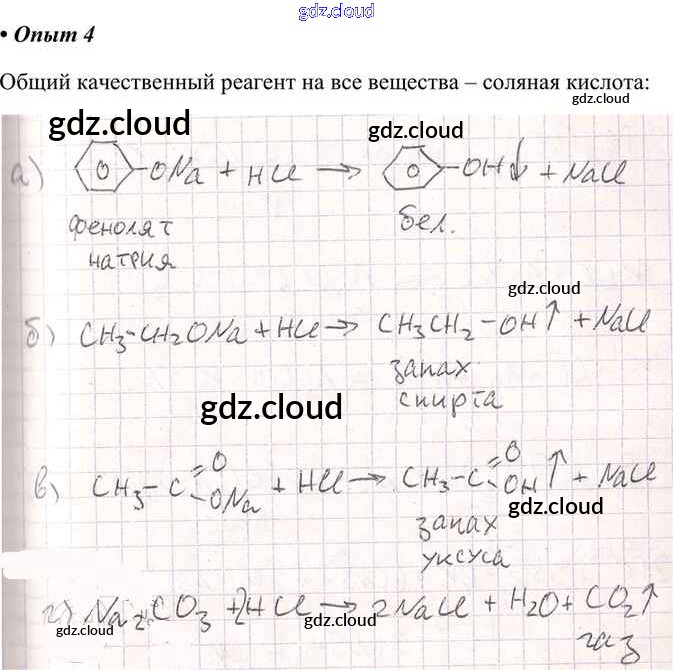 gdz.cloud
• Опыт 4
Общий качественный реагент на все вещества – соляная кислота:
gdz.cloud
gdz.cloud gdz.cloud
а) ⌬–ONa + HCl → ⌬–OH↓ + NaCl
фенолят бел.
натрия
gdz.cloud
б) CH₃-CH₂ONa + HCl → CH₃CH₂–OH↑ + NaCl
запах
спирта
gdz.cloud
в) CH₃–C(=O)ONa + HCl → CH₃–C(=O)OH↑ + NaCl
gdz.cloud
запах
уксуса
г) Na₂CO₃ + 2HCl → 2NaCl + H₂O + CO₂↑
gdz.cloud gdz.cloud gdz.cloud
газ